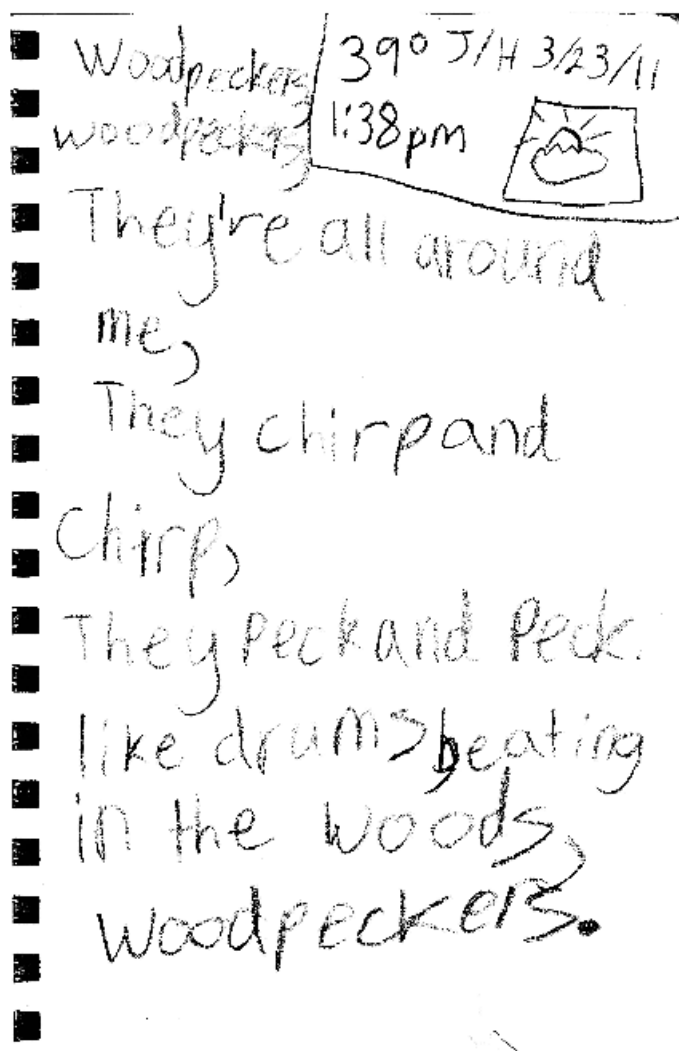 Woodpeckers,
woodpeckers,
39° J/H 3/23/11
1:38pm
They're all around
me,
They chirp and
Chirp,
They peck and Peck.
like drums beating
in the woods,
Woodpeckers.